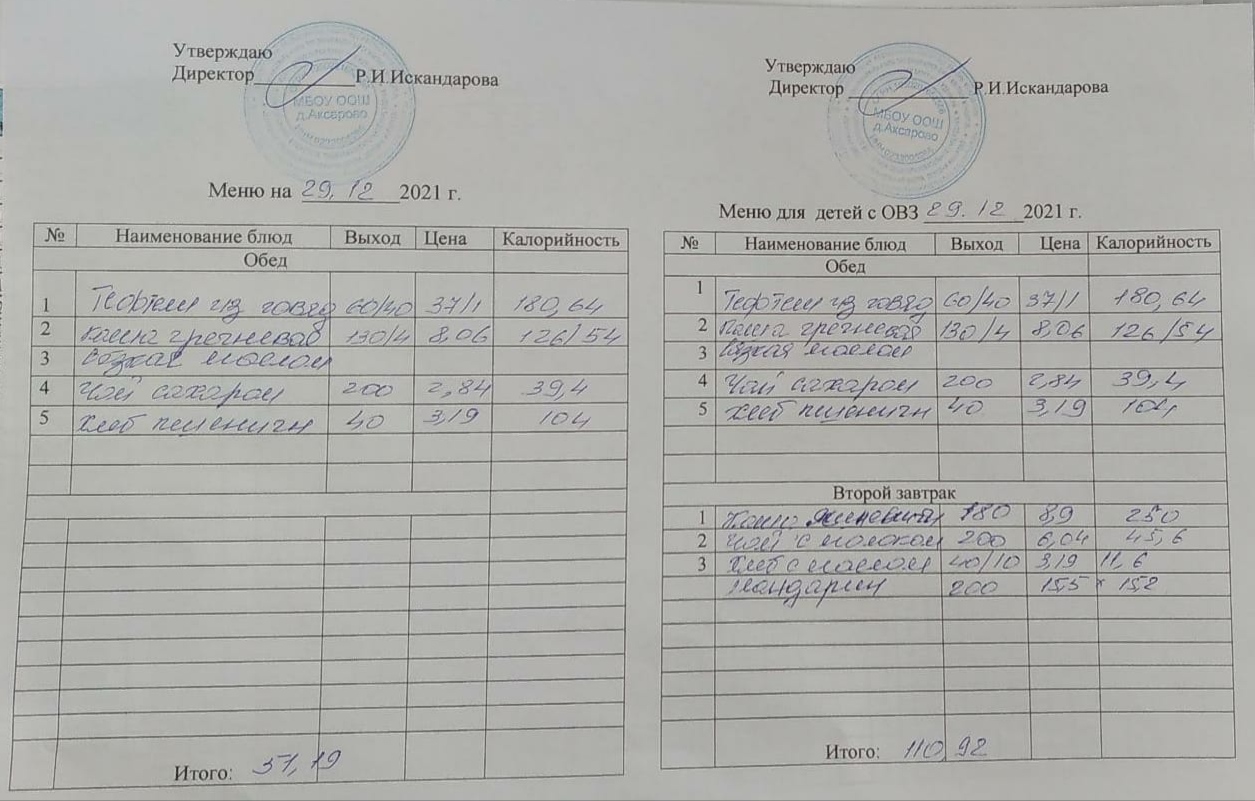 Утверждаю
Директор__________ Р.И.Искандарова
МБОУ ООШ
д.Аксарово
Меню на 29.12 2021 г.
№ Наименование блюд Выход Цена Калорийность
Обед
1 Тефтели из говяд 60/40 37/1 180,64
2 Каша гречневая 130/4 8,06 126/54
3 маслом
4 Чай сахаром 200 2,84 39,4
5 Хлеб пшеничн 40 3,19 104
Итого: 51,19
Утверждаю
Директор ____________ Р.И.Искандарова
МБОУ ООШ
д.Аксарово
Меню для детей с ОВЗ 29.12 2021 г.
№ Наименование блюд Выход Цена Калорийность
Обед
1 Тефтели из говяд 60/40 37/1 180,64
2 Каша гречневая 130/4 8,06 126/54
3 маслом
4 Чай сахаром 200 2,84 39,4
5 Хлеб пшеничн 40 3,19 104
Второй завтрак
1 Каша 180 8,9 250
2 Чай с молоком 200 6,04 45,6
3 Хлеб с маслом 40/10 3,19 11,6
Мандарин 200 15,5 152
Итого: 110,92